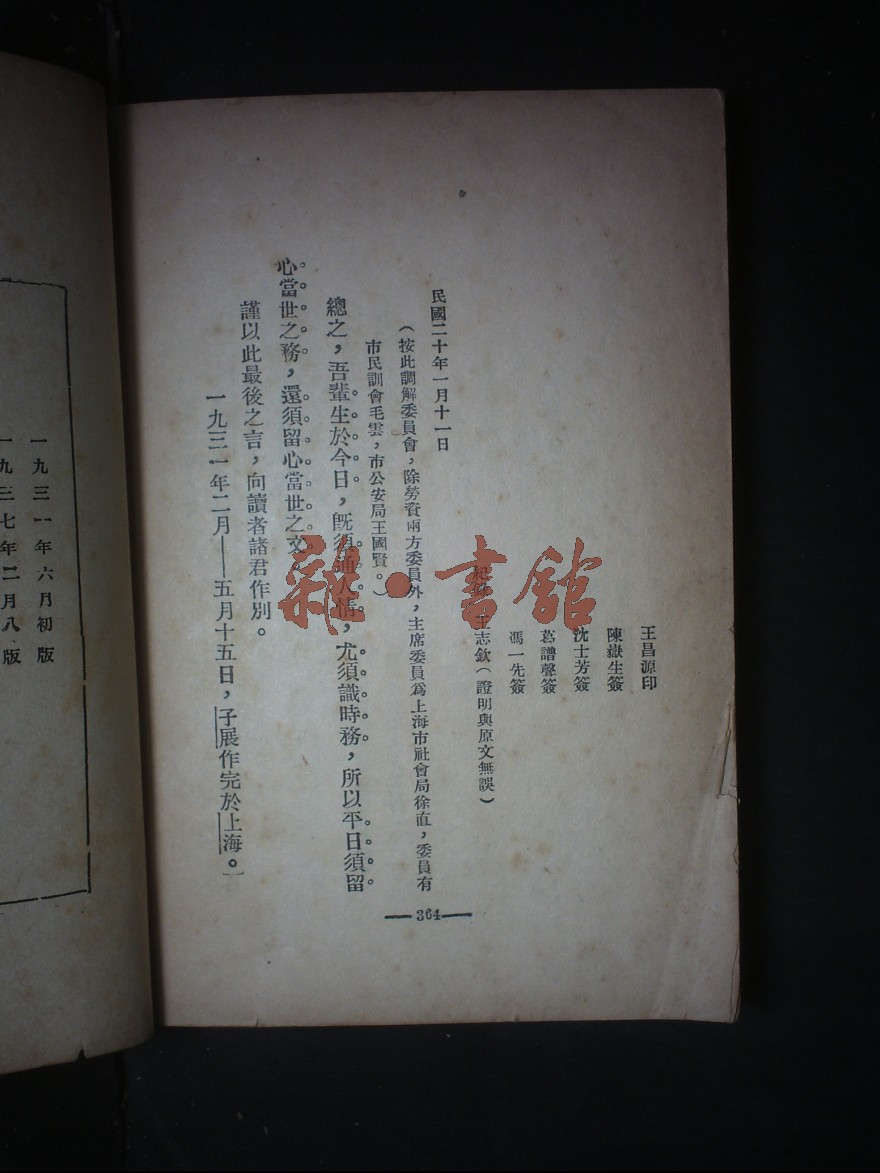 王昌源印
陳嶽生簽
沈士芳簽
葛譜聲簽
馮一先簽
紀錄 王志欽（證明與原文無誤）
民國二十年一月十一日
（按此調解委員會，除勞資兩方委員外，主席委員爲上海市社會局徐直，委員有
市民訓會毛雲，市公安局王國賢。）
總之，吾輩生於今日，旣須通人情，尤須識時務，所以平日須留
心當世之務，還須留心當世之文。
謹以此最後之言，向讀者諸君作別。
一九三一年二月——五月十五日，子展作完於上海。〕
——364——
一九三一年六月初版
一九三七年二月八版
雜·書館